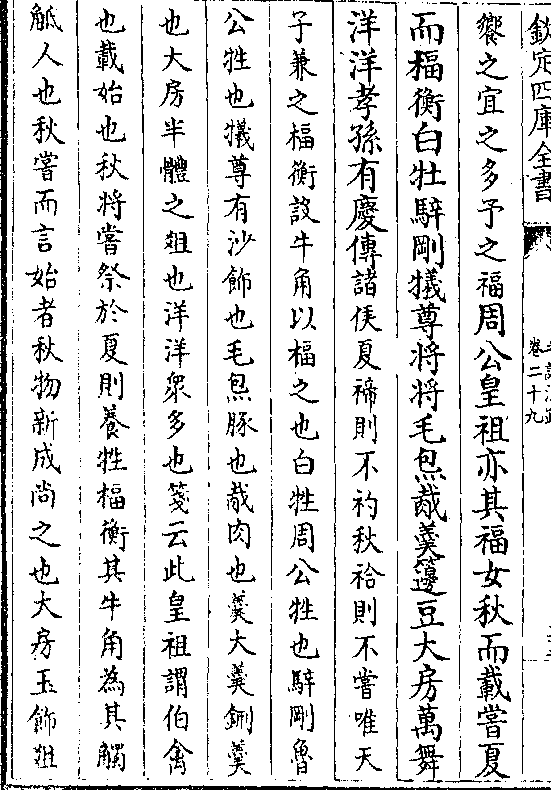 欽定四庫全書
卷二十九
饗之宜之多予之福周公皇祖亦其福女秋而載嘗夏
而楅衡白牡騂剛犧尊將將毛炰胾羮籩豆大房萬舞
洋洋孝孫有慶傳諸侯夏禘則不礿秋祫則不嘗唯天
子兼之楅衡設牛角以楅之也白牡周公牲也騂剛魯
公牲也犧尊有沙飾也毛炰豚也胾肉也羮大羮鉶羮
也大房半體之俎也洋洋衆多也箋云此皇祖謂伯禽
也載始也秋將嘗祭於夏則養牲楅衡其牛角為其觸
觝人也秋嘗而言始者秋物新成尚之也大房玉飾俎